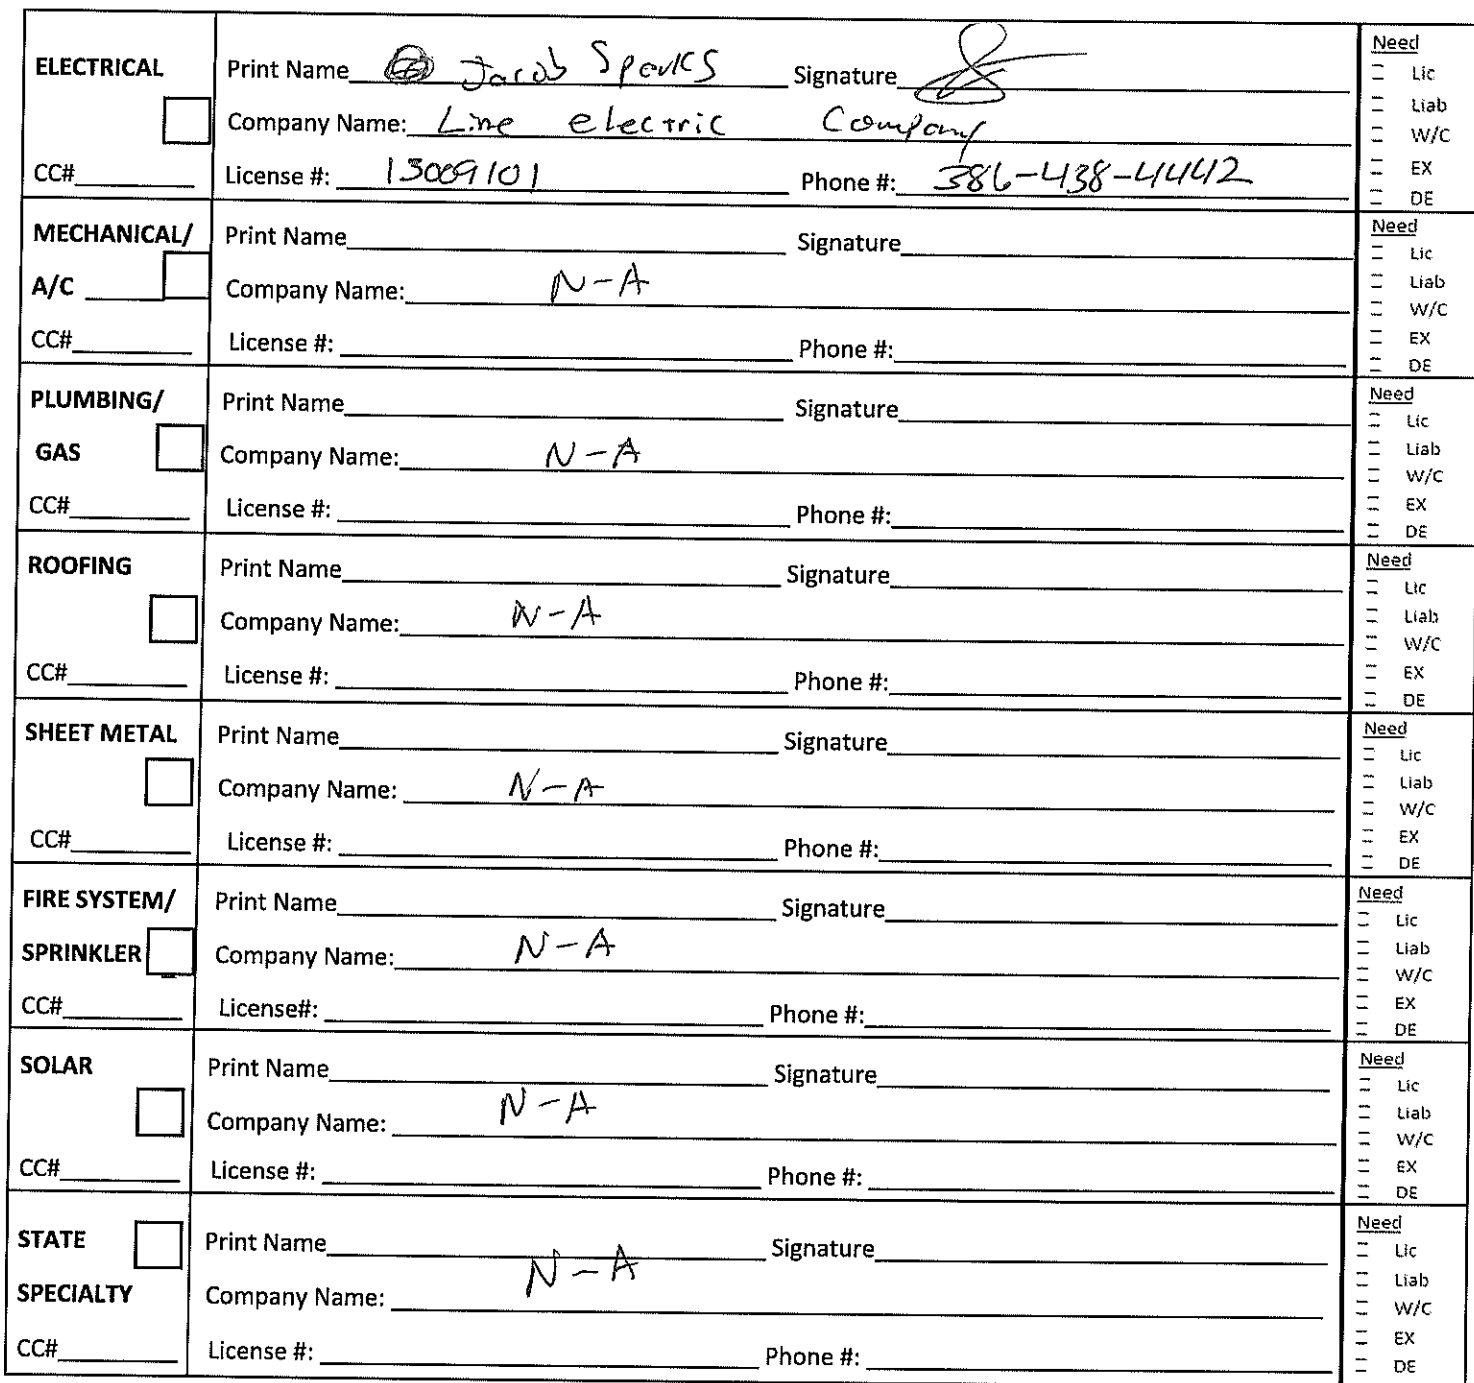 ELECTRICAL Print Name Jacob Sparks Signature
Company Name: Line electric Company
CC# License #: 13009101 Phone #: 386-438-4442
Need
Lic
Liab
W/C
EX
DE
MECHANICAL/ Print Name Signature
A/C Company Name: N-A
CC# License #: Phone #:
Need
Lic
Liab
W/C
EX
DE
PLUMBING/ Print Name Signature
GAS Company Name: N-A
CC# License #: Phone #:
Need
Lic
Liab
W/C
EX
DE
ROOFING Print Name Signature
Company Name: N-A
CC# License #: Phone #:
Need
Lic
Liab
W/C
EX
DE
SHEET METAL Print Name Signature
Company Name: N-A
CC# License #: Phone #:
Need
Lic
Liab
W/C
EX
DE
FIRE SYSTEM/ Print Name Signature
SPRINKLER Company Name: N-A
CC# License#: Phone #:
Need
Lic
Liab
W/C
EX
DE
SOLAR Print Name Signature
Company Name: N-A
CC# License #: Phone #:
Need
Lic
Liab
W/C
EX
DE
STATE Print Name Signature
SPECIALTY Company Name: N-A
CC# License #: Phone #:
Need
Lic
Liab
W/C
EX
DE